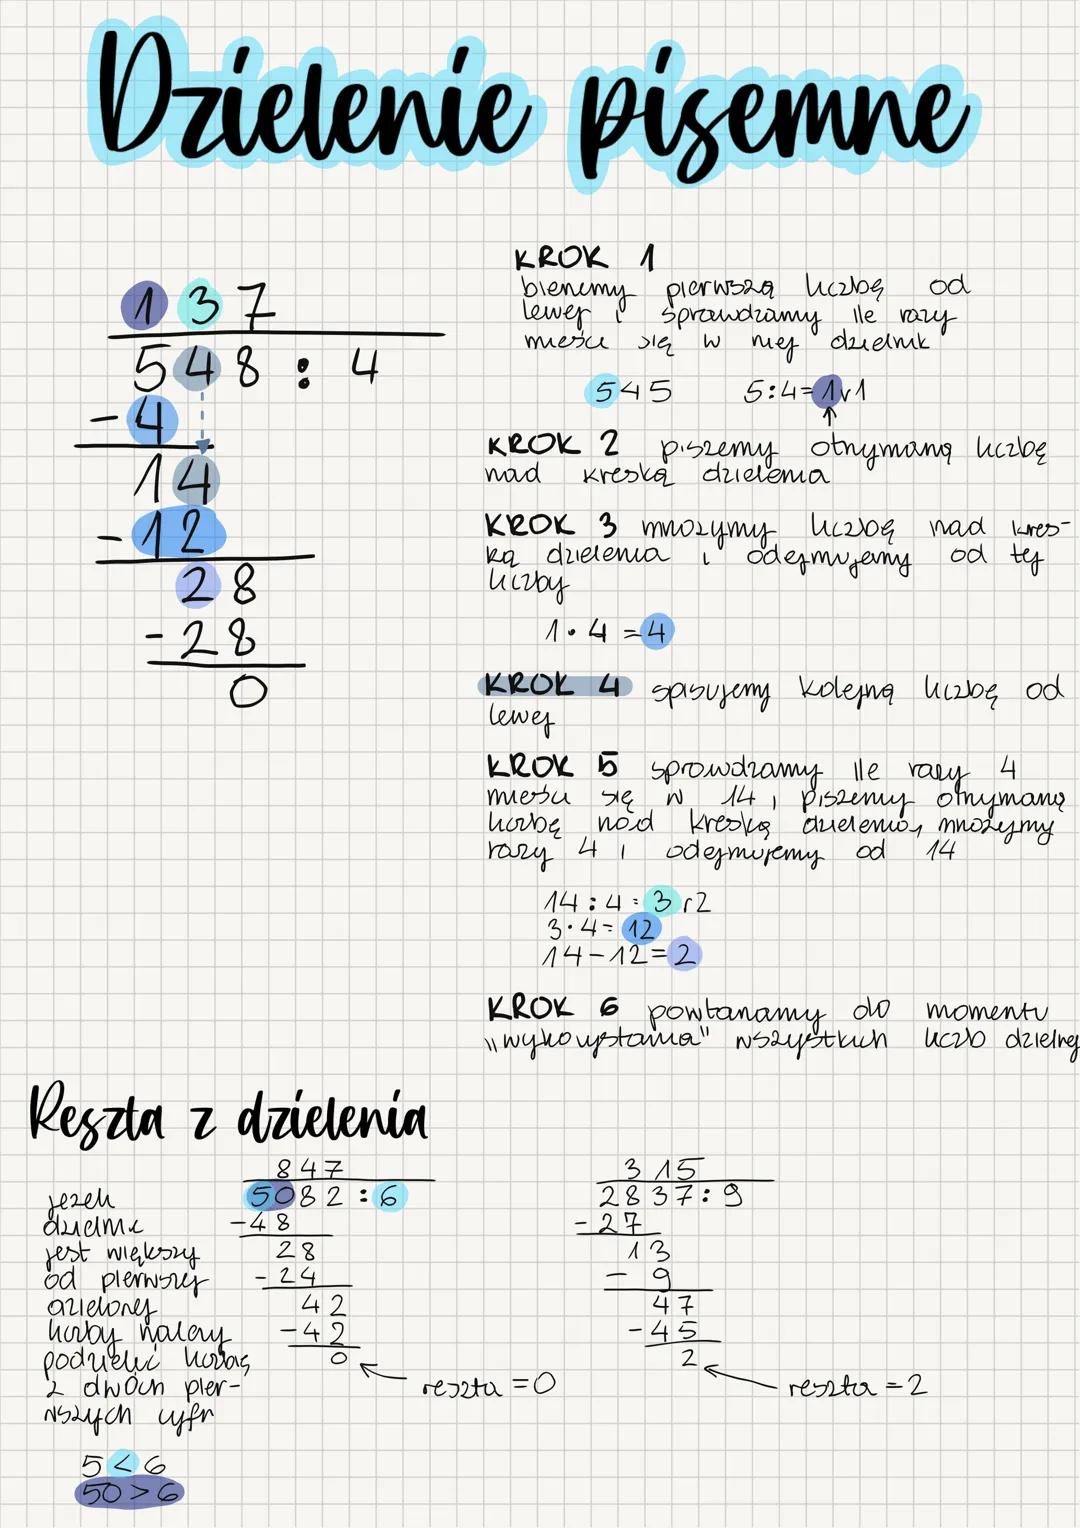 Dzielenie pisemne
137
548 : 4
-4
14
-12
28
-28
0
KROK 1
bierzemy pierwszą liczbę od
lewej i sprawdzamy ile razy
mieści się w niej dzielnik
545 5:4=1r1
KROK 2 piszemy otrzymaną liczbę
nad kreską dzielenia
KROK 3 mnożymy liczbę nad kres-
ką dzielenia i odejmujemy od tej
liczby
1·4=4
KROK 4 spisujemy kolejną liczbę od
lewej
KROK 5 sprawdzamy ile razy 4
mieści się w 14, piszemy otrzymaną
liczbę nad kreską dzielenia, mnożymy
razy 4 i odejmujemy od 14
14:4=3 r2
3·4=12
14-12=2
KROK 6 powtarzamy do momentu
"wykorzystania" wszystkich liczb dzielnej
Reszta z dzielenia
jeżeli
dzielnik
jest większy
od pierwszej
dzielonej
liczby należy
podzielić liczbę
z dwóch pier-
wszych cyfr
5 < 6
50 > 6
847
5082 : 6
-48
28
-24
42
-42
0
reszta = 0
315
2837 : 9
-27
13
- 9
47
-45
2
reszta = 2